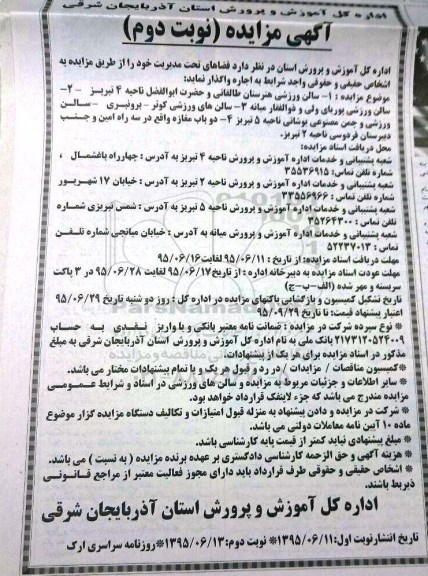 اداره کل آموزش و پرورش استان آذربایجان شرقی
آگهی مزایده (نوبت دوم)
اداره کل آموزش و پرورش استان در نظر دارد فضاهای تحت مدیریت خود را از طریق مزایده به
اشخاص حقیقی و حقوقی واجد شرایط به اجاره واگذار نماید:
موضوع مزایده : ۱- سالن ورزشی هنرستان طالقانی و حضرت ابوالفضل ناحیه ۴ تبریز - ۲-
سالن ورزشی پوریای ولی و ذوالفقار میانه ۳- سالن های ورزشی کوثر - - سالن
ورزشی و چمن مصنوعی ناحیه ۵ تبریز ۴- دو باب مغازه واقع در سه راه امین و جنب
دبیرستان فردوسی ناحیه ۲ تبریز.
محل دریافت اسناد مزایده:
شعبه پشتیبانی و خدمات اداره آموزش و پرورش ناحیه ۴ تبریز به آدرس : چهارراه باغشمال ،
شماره تلفن تماس: ۳۵۵۳۶۹۱۵
شعبه پشتیبانی و خدمات اداره آموزش و پرورش ناحیه ۲ تبریز به آدرس : خیابان ۱۷ شهریور
شماره تلفن تماس : ۳۳۵۵۶۹۶۶
شعبه پشتیبانی و خدمات اداره آموزش و پرورش ناحیه ۵ تبریز به آدرس : شمس تبریزی شماره
تلفن تماس : ۳۵۲۶۴۳۰۰
شعبه پشتیبانی و خدمات اداره آموزش و پرورش میانه به آدرس : خیابان میانجی شماره تلفن
تماس : ۵۲۲۳۷۰۱۳
مهلت دریافت اسناد مزایده: از تاریخ : ۹۵/۰۶/۱۱ لغایت ۹۵/۰۶/۱۶
مهلت عودت اسناد مزایده به دبیرخانه اداره : از تاریخ ۹۵/۰۶/۱۷ لغایت ۹۵/۰۶/۲۸ در ۳ پاکت
سربسته و مهر شده (الف-ب-ج)
تاریخ تشکیل کمیسیون و بازگشایی پاکتهای مزایده در اداره کل : روز دو شنبه تاریخ ۹۵/۰۶/۲۹
اعتبار پیشنهاد قیمت: تا تاریخ ۹۵/۰۹/۲۹
* نوع سپرده شرکت در مزایده : ضمانت نامه معتبر بانکی و یا واریز نقدی به حساب
۲۱۷۳۱۲۰۵۲۴۰۰۹ بانک ملی به نام اداره کل آموزش و پرورش استان آذربایجان شرقی به مبلغ
مذکور در اسناد مزایده برای هر یک از پیشنهادات.
*کمیسیون مناقصات / مزایدات / در رد و قبول هر یک و یا تمام پیشنهادات مختار می باشد.
* سایر اطلاعات و جزئیات مربوط به مزایده و سالن های ورزشی در اسناد و شرایط عمومی
مزایده مندرج می باشد که جزء لاینفک قرارداد خواهد بود.
* شرکت در مزایده و دادن پیشنهاد به منزله قبول امتیازات و تکالیف دستگاه مزایده گزار موضوع
ماده ۱۰ آیین نامه معاملات دولتی می باشد.
* مبلغ پیشنهادی نباید کمتر از قیمت پایه کارشناسی باشد.
* هزینه آگهی و حق الزحمه کارشناسی دادگستری بر عهده برنده مزایده ( به نسبت ) می باشد.
* اشخاص حقیقی و حقوقی طرف قرارداد باید دارای مجوز فعالیت معتبر از مراجع قانونی
ذیربط باشند.
اداره کل آموزش و پرورش استان آذربایجان شرقی
تاریخ انتشار نوبت اول: ۱۳۹۵/۰۶/۱۱ * نوبت دوم: ۱۳۹۵/۰۶/۱۳ * روزنامه سراسری ارک